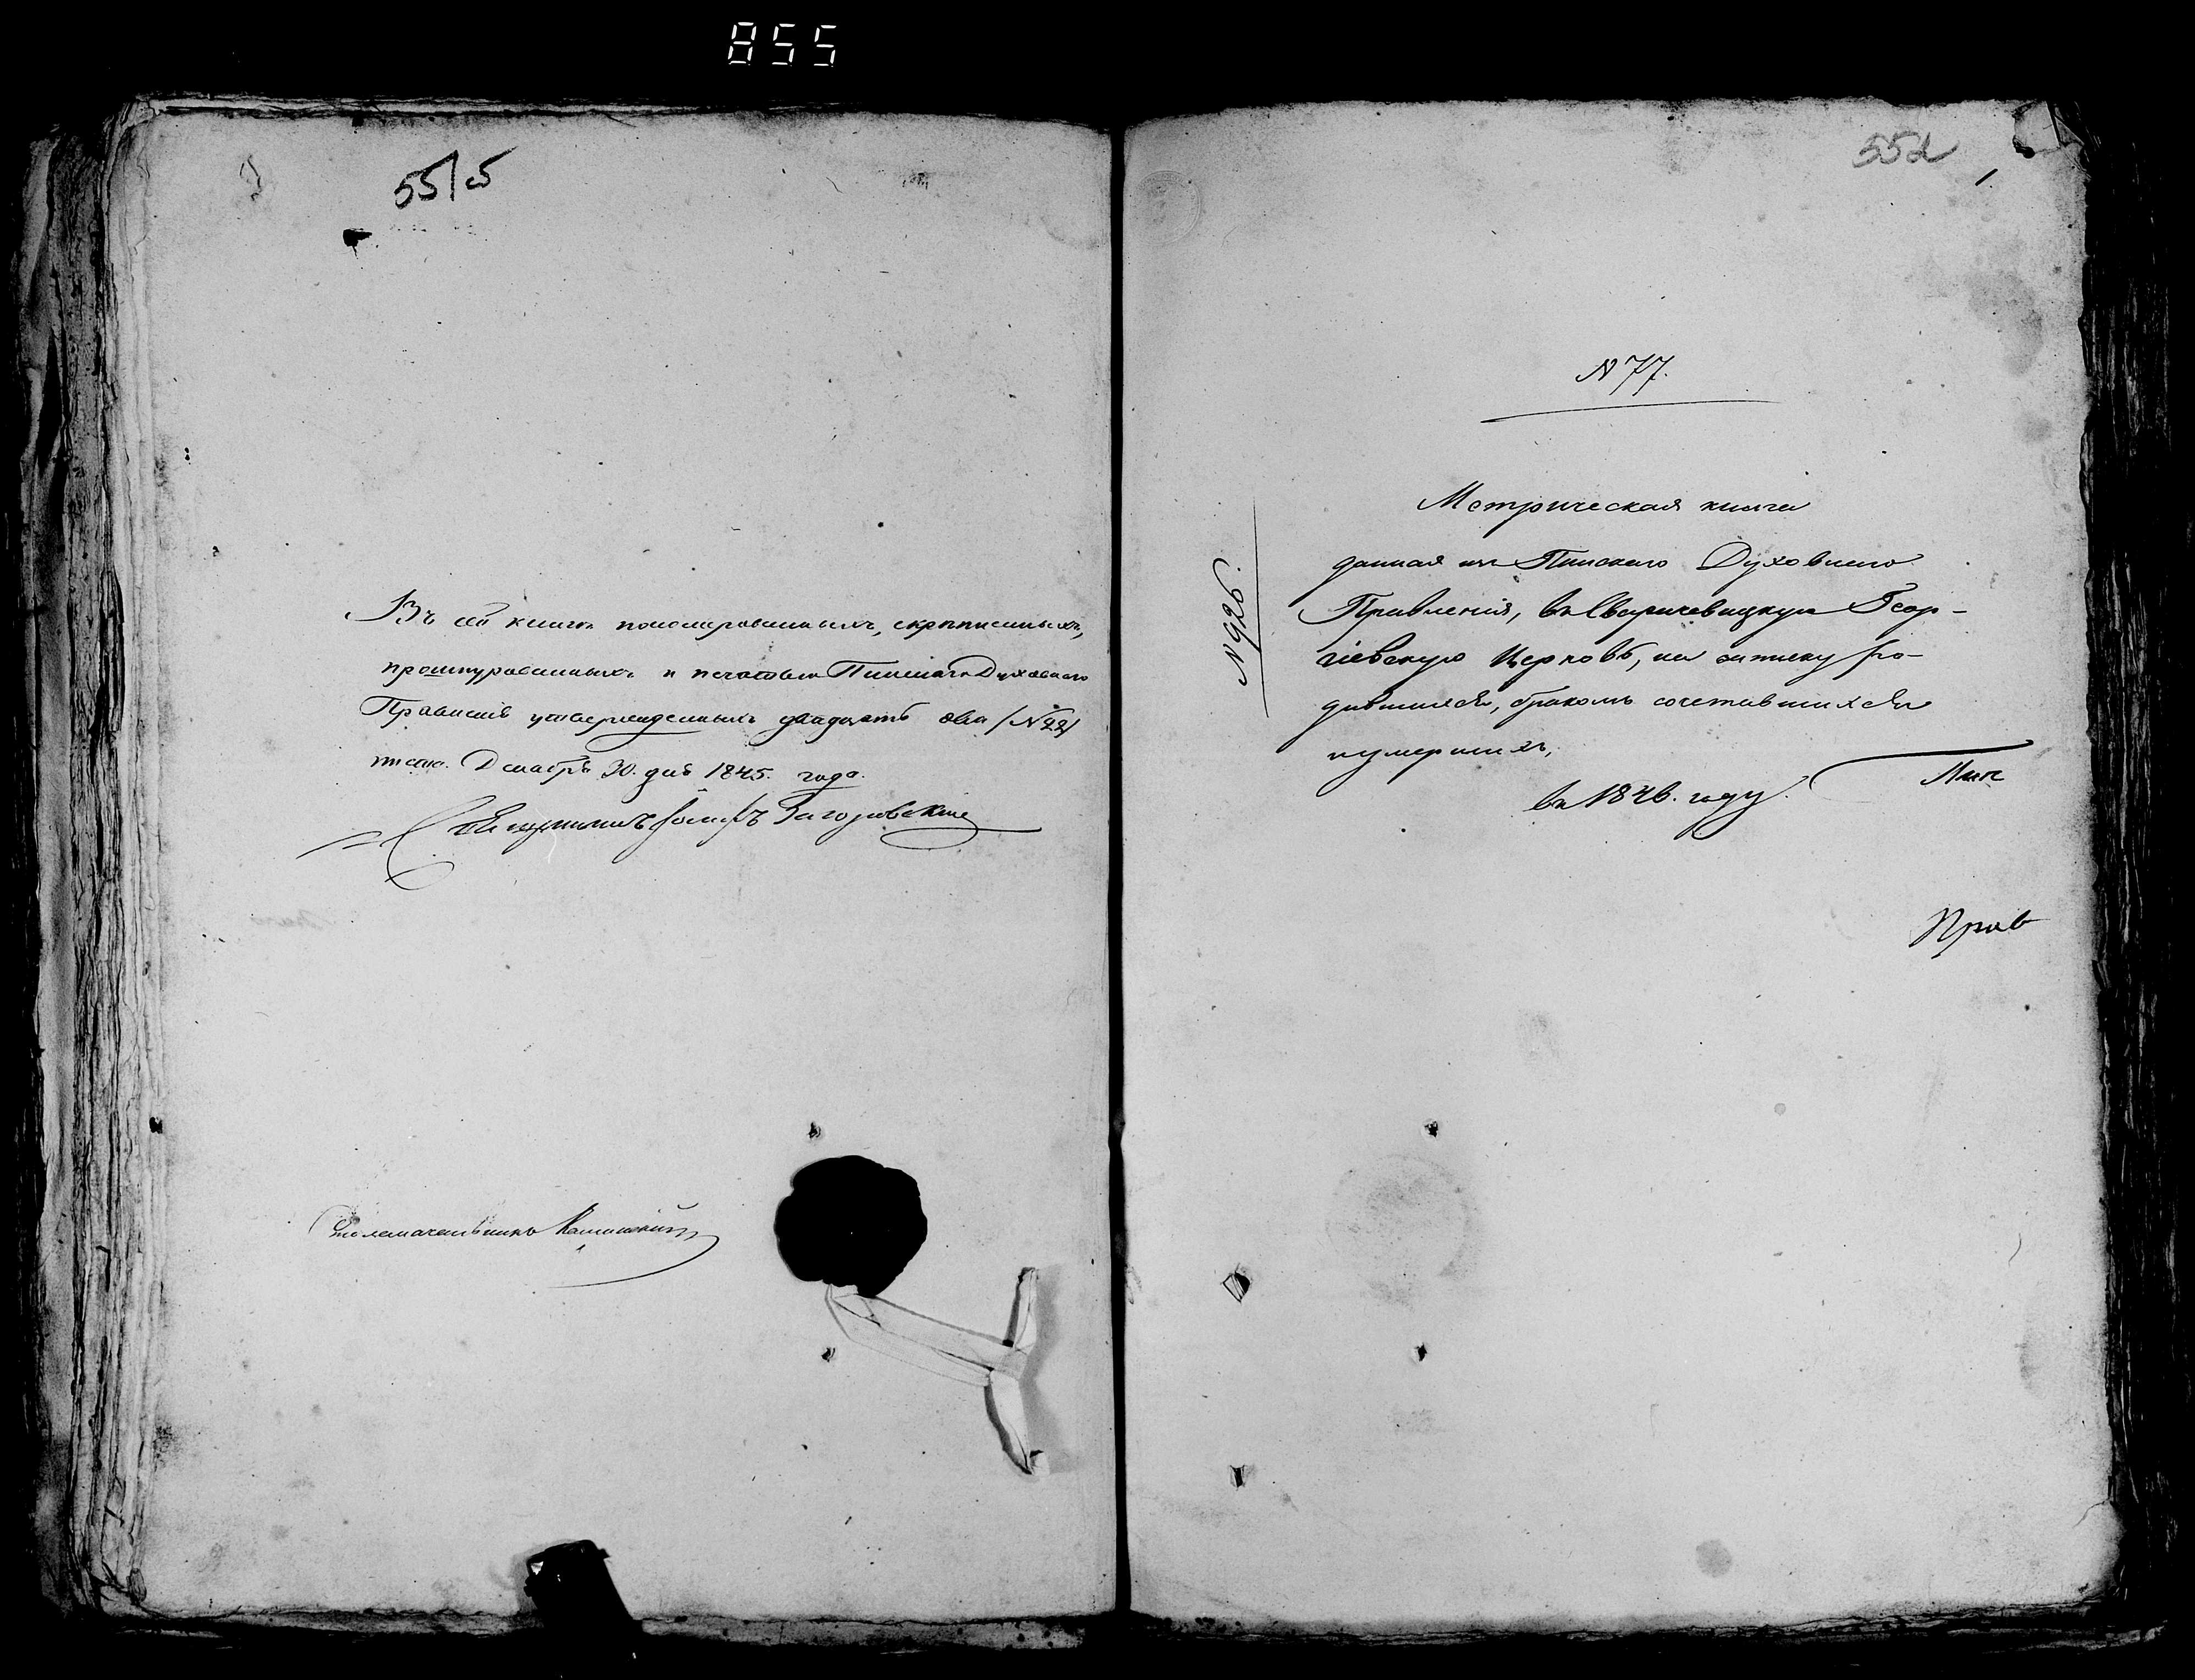 855
551
Въ сей книгѣ нономерованныхъ, скрѣпленныхъ,
прошнурованныхъ и печатью Пинскаго Духовнаго
Правленія утвержденныхъ двадцать два / №22/
листа. Декабря 30. дня 1845. года.
Столоначальникъ
552
1
№ 77.
№ 926.
Метрическая книга
данная изъ Пинскаго Духовнаго
Правленія, въ Сваричевицкую Геор-
гіевскую Церковь, на записку ро-
дившихся, бракомъ сочетавшихся
и умершихъ,
въ 1846. году.
Пин
Прав